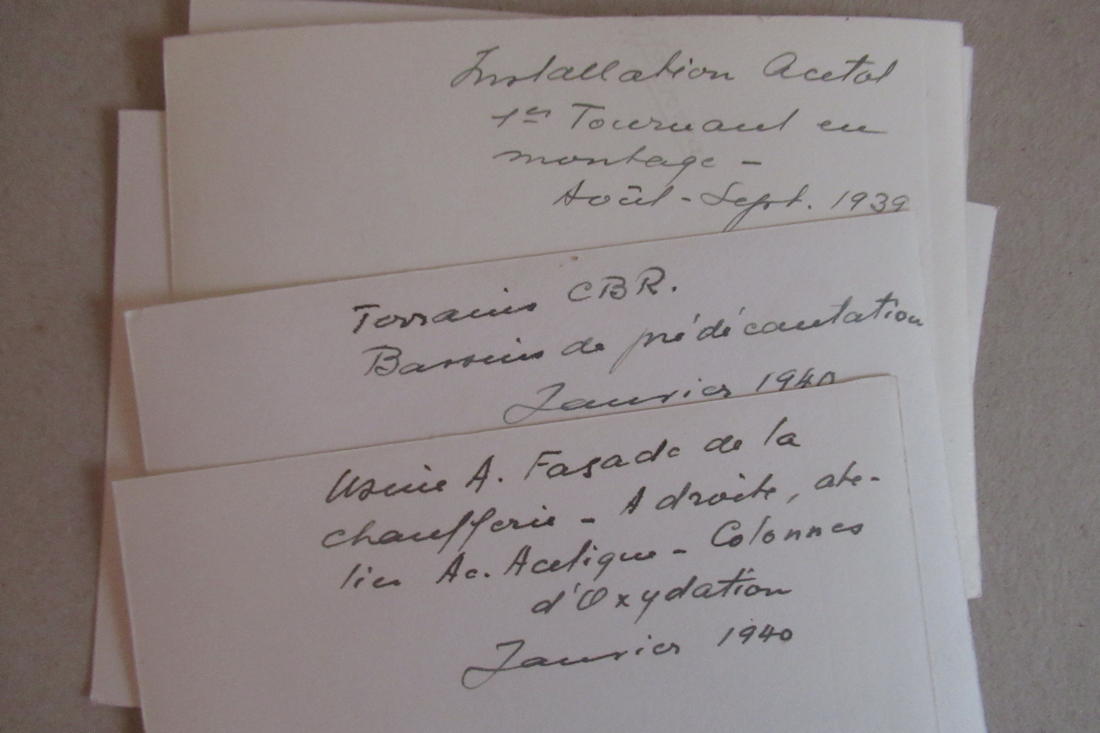 Installation Acetol
1er Tournant en
montage -
Août - Sept. 1939
Terrains CBR.
Bassins de prédécantation
Janvier 1940
Usine A. Façade de la
chaufferie - A droite, ate-
lier Ac. Acetique - Colonnes
d'Oxydation
Janvier 1940